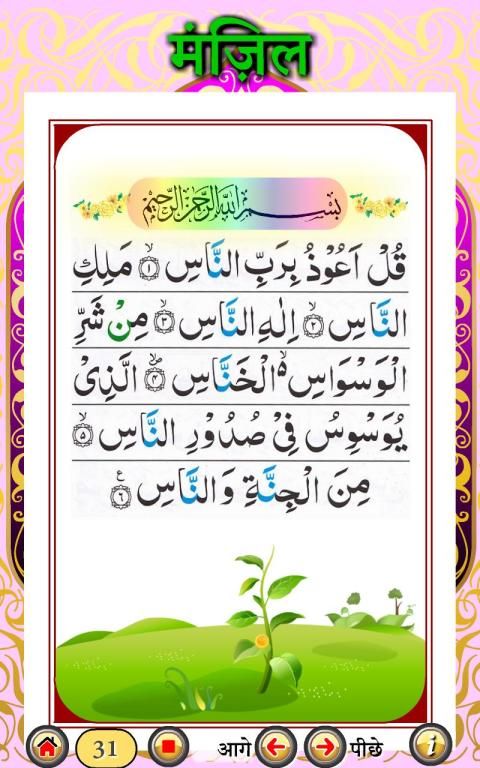 मंज़िल
بِسْمِ اللهِ الرَّحْمٰنِ الرَّحِيْمِ
قُلْ اَعُوْذُ بِرَبِّ النَّاسِ ۙ﴿۱﴾ مَلِكِ
النَّاسِ ۙ﴿۲﴾ اِلٰهِ النَّاسِ ۙ﴿۳﴾ مِنْ شَرِّ
الْوَسْوَاسِ ۙ الْخَنَّاسِ ۪ۙ﴿۴﴾ الَّذِیْ
یُوَسْوِسُ فِیْ صُدُوْرِ النَّاسِ ۙ﴿۵﴾
مِنَ الْجِنَّةِ وَالنَّاسِ ﴿۶﴾ ع
31 आगे पीछे i